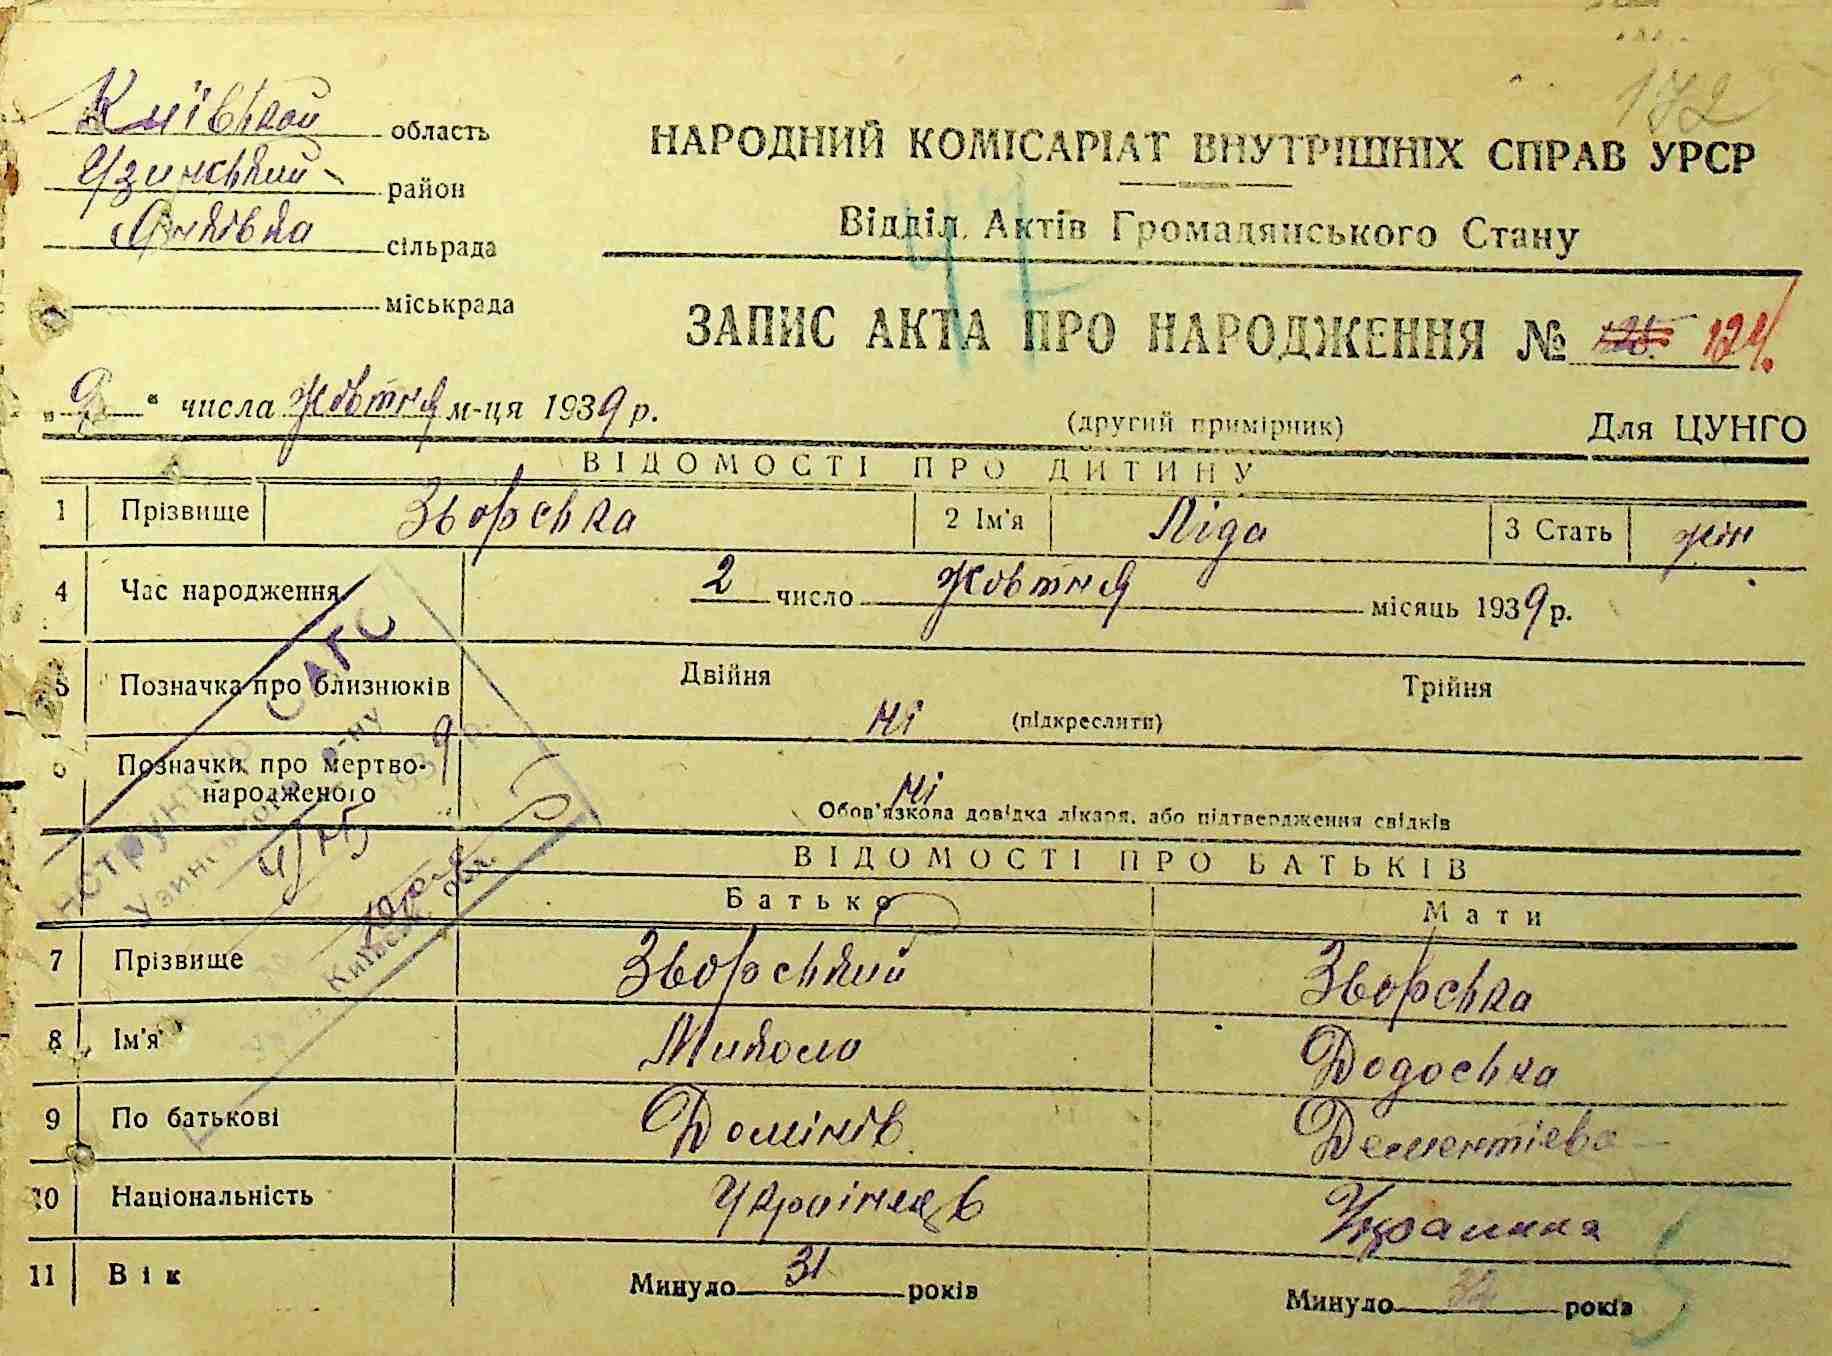 172
Київської область
Узинський район
Янківка сільрада
міськрада
НАРОДНИЙ КОМІСАРІАТ ВНУТРІШНІХ СПРАВ УРСР
Відділ Актів Громадянського Стану
47
ЗАПИС АКТА ПРО НАРОДЖЕННЯ № 125 124.
„9“ числа жовтня м-ця 1939 р.
(другий примірник) Для ЦУНГО
ВІДОМОСТІ ПРО ДИТИНУ
1 Прізвище Зворська 2 Ім'я Ліда 3 Стать жін
4 Час народження 2 число жовтня місяць 1939 р.
5 Позначка про близнюків Двійня Трійня
ні (підкреслити)
6 Позначки про мертвонародженого ні
Обов'язкова довідка лікаря, або підтвердження свідків
САГС
Узинського р-ну
Київськ. обл.
ВІДОМОСТІ ПРО БАТЬКІВ
Батько Мати
7 Прізвище Зворський Зворська
8 Ім'я Микола Додоська
9 По батькові Домінів Дементіева
10 Національність Українець Украинка
11 Вік Минуло 31 років Минуло років